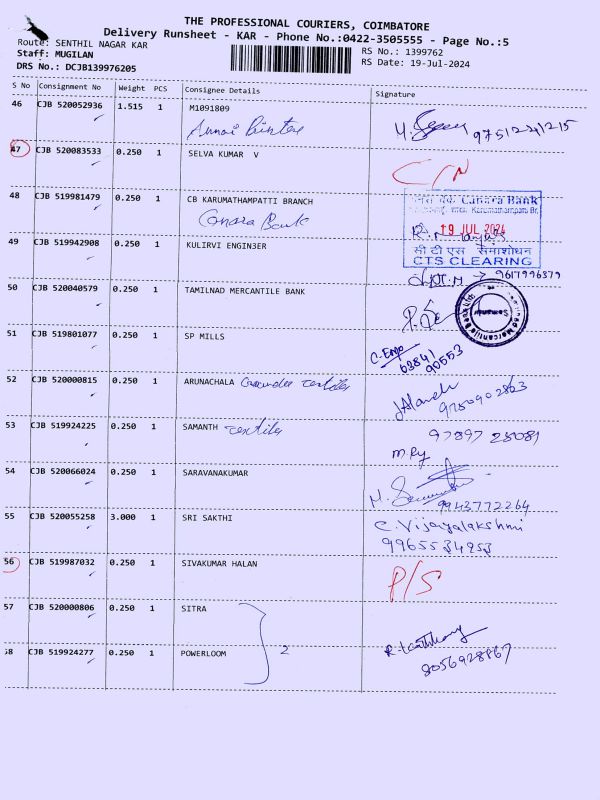 THE PROFESSIONAL COURIERS, COIMBATORE
Delivery Runsheet - KAR - Phone No.:0422-3505555 - Page No.:5
Route: SENTHIL NAGAR KAR
Staff: MUGILAN
DRS No.: DCJB139976205
RS No.: 1399762
RS Date: 19-Jul-2024
S No Consignment No Weight PCS Consignee Details Signature
46 CJB 520052936 1.515 1 M1091809
Annai Printers 9751241215
47 CJB 520083533 0.250 1 SELVA KUMAR V
C/N
48 CJB 519981479 0.250 1 CB KARUMATHAMPATTI BRANCH
Canara Bank
Canara Bank
Karumathampatti Br.
19 JUL 2024
सी टी एस समाशोधन
CTS CLEARING
49 CJB 519942908 0.250 1 KULIRVI ENGINSER
9617996379
50 CJB 520040579 0.250 1 TAMILNAD MERCANTILE BANK
51 CJB 519801077 0.250 1 SP MILLS
C. Engo
63841
90553
52 CJB 520000815 0.250 1 ARUNACHALA textiles
9750902863
53 CJB 519924225 0.250 1 SAMANTH textiles
97897 28081
54 CJB 520066024 0.250 1 SARAVANAKUMAR
9943772264
55 CJB 520055258 3.000 1 SRI SAKTHI
C. Vijayalakshmi
9965534953
56 CJB 519987032 0.250 1 SIVAKUMAR HALAN
P/S
57 CJB 520000806 0.250 1 SITRA
2
58 CJB 519924277 0.250 1 POWERLOOM
8056928867